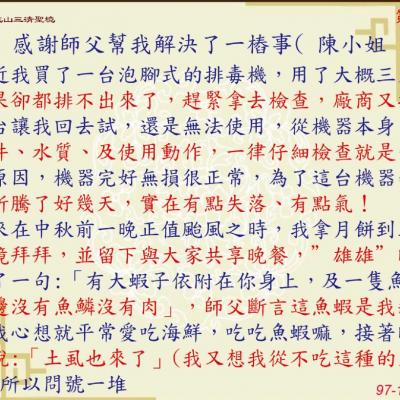 山三清聖境
感謝師父幫我解決了一樁事( 陳小姐
近我買了一台泡腳式的排毒機，用了大概三
果卻都排不出來了，趕緊拿去檢查，廠商又
台讓我回去試，還是無法使用，從機器本身
件、水質、及使用動作，一律仔細檢查就是
原因，機器完好無損很正常，為了這台機器
折騰了好幾天，實在有點失落、有點氣！
來在中秋前一晚正值颱風之時，我拿月餅到
境拜拜，並留下與大家共享晚餐，”雄雄”
了一句:「有大蝦子依附在你身上，及一隻魚
邊沒有魚鱗沒有肉」，師父斷言這魚蝦是我
我心想就平常愛吃海鮮，吃吃魚蝦嘛，接著
說:「土虱也來了」(我又想我從不吃這種的
所以問號一堆
97-1